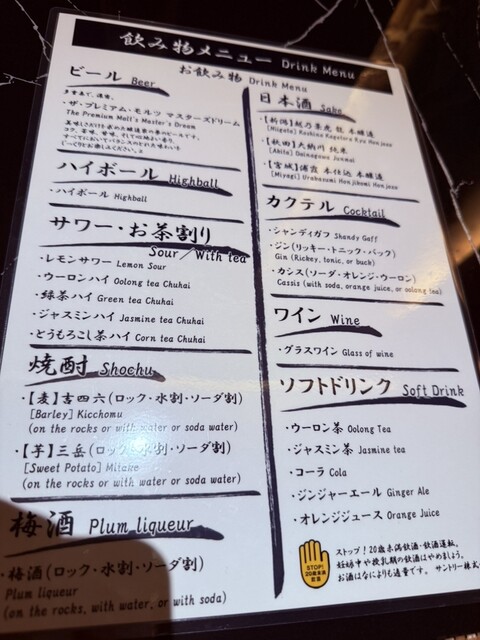 飲み物メニュー Drink Menu
お飲み物 Drink Menu
ビール Beer
・ザ・プレミアム・モルツ マスターズドリーム
The Premium Malt's Master's Dream
ハイボール Highball
・ハイボール Highball
サワー・お茶割り
Sour / With tea
・レモンサワー Lemon Sour
・ウーロンハイ Oolong tea Chuhai
・緑茶ハイ Green tea Chuhai
・ジャスミンハイ Jasmine tea Chuhai
・とうもろこし茶ハイ Corn tea Chuhai
焼酎 Shochu
・【麦】吉四六(ロック・水割・ソーダ割)
[Barley] Kicchomu
(on the rocks or with water or soda water)
・【芋】三岳(ロック・水割・ソーダ割)
[Sweet Potato] Mitake
(on the rocks or with water or soda water)
梅酒 Plum liqueur
・梅酒(ロック・水割・ソーダ割)
Plum liqueur
(on the rocks, with water, or with soda)
日本酒 Sake
・【新潟】越乃寒虎 龍 本醸造
・【秋田】大納川 純米
[Akita] Dainagawa Junmai
・【宮城】浦霞 本仕込 本醸造
[Miyagi] Urakasumi Honjikomi Honjozo
カクテル Cocktail
・シャンディガフ Shandy Gaff
・ジン(リッキー・トニック・バック)
Gin (Rickey, tonic, or buck)
・カシス(ソーダ・オレンジ・ウーロン)
Cassis (with soda, orange juice, or oolong tea)
ワイン Wine
・グラスワイン Glass of wine
ソフトドリンク Soft Drink
・ウーロン茶 Oolong Tea
・ジャスミン茶 Jasmine tea
・コーラ Cola
・ジンジャーエール Ginger Ale
・オレンジジュース Orange Juice
STOP!
20歳未満
飲酒
ストップ!20歳未満飲酒・飲酒運転。
妊娠中や授乳期の飲酒はやめましょう。
お酒はなによりも適量です。 サントリー株式